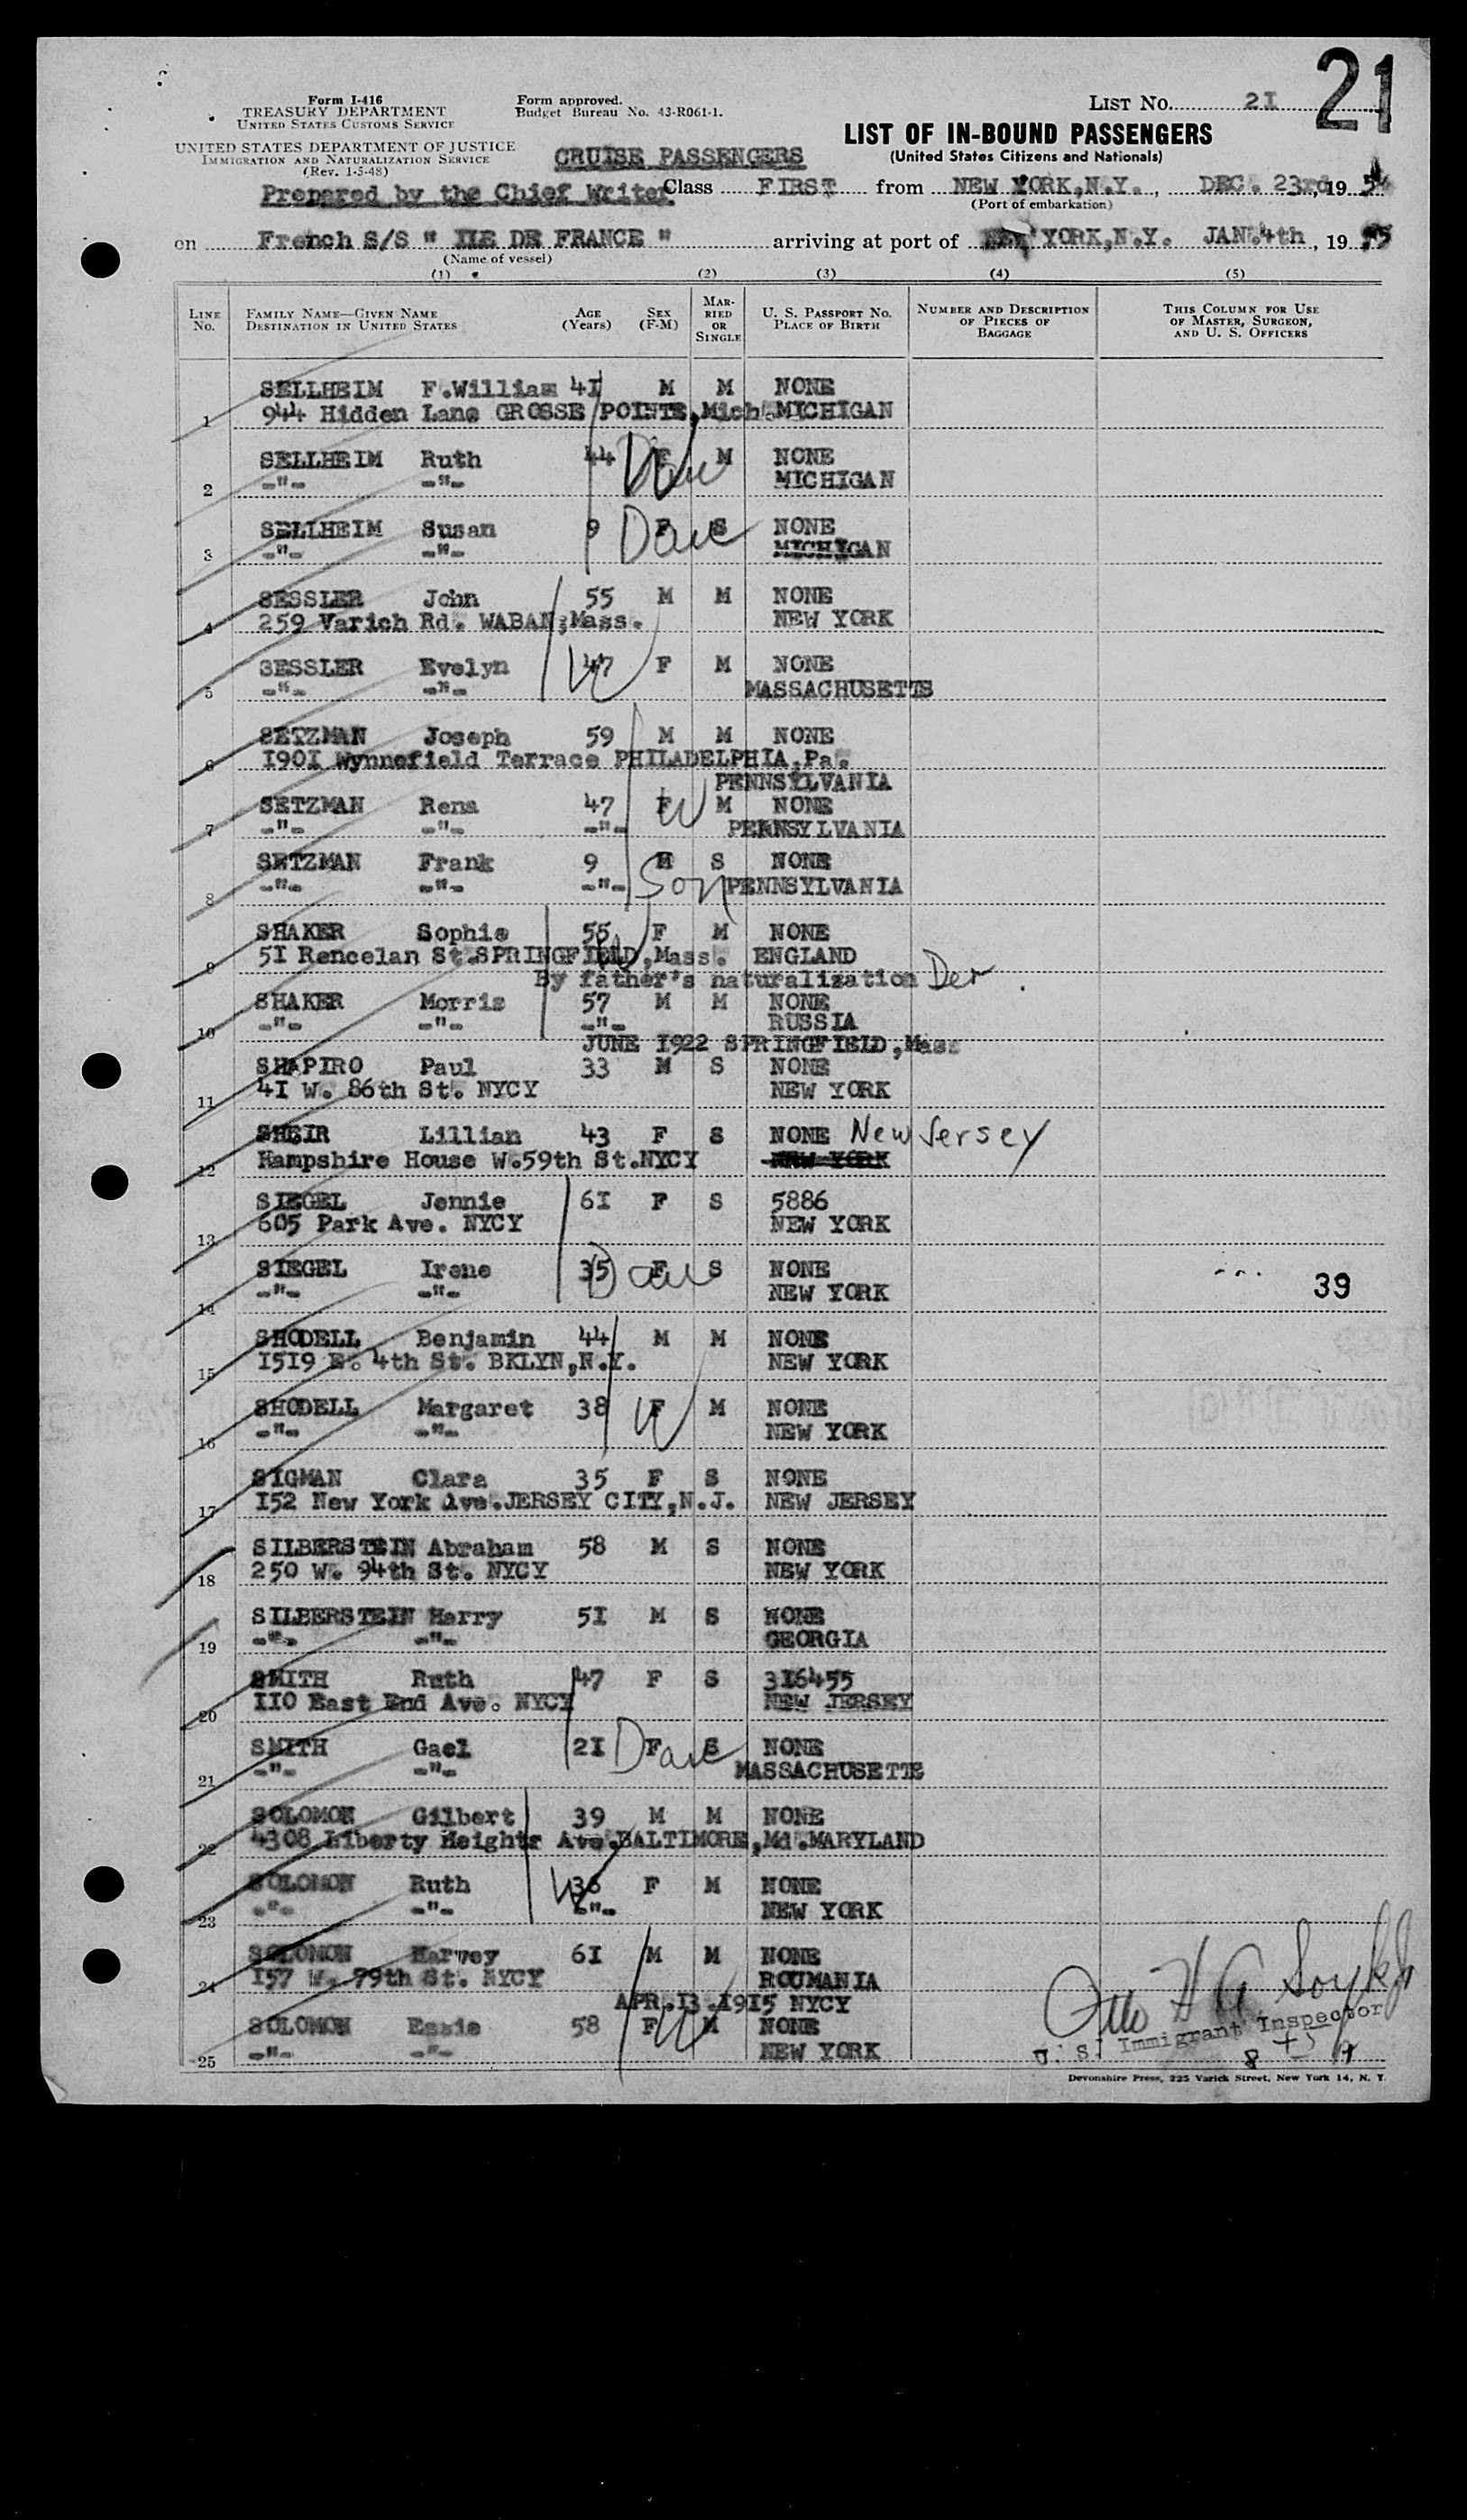 21
Form I-416
TREASURY DEPARTMENT
UNITED STATES CUSTOMS SERVICE
UNITED STATES DEPARTMENT OF JUSTICE
IMMIGRATION AND NATURALIZATION SERVICE
(Rev. 1-5-48)
Form approved.
Budget Bureau No. 43-R061-1.
LIST No. 2I
LIST OF IN-BOUND PASSENGERS
(United States Citizens and Nationals)
CRUISE PASSENGERS
Prepared by the Chief Writer Class FIRST from NEW YORK,N.Y., DEC. 23rd, 1954
(Port of embarkation)
on French S/S " ILE DE FRANCE " arriving at port of NEW YORK,N.Y. JAN.4th, 1955
(Name of vessel)
(1) (2) (3) (4) (5)
LINE No. FAMILY NAME—GIVEN NAME DESTINATION IN UNITED STATES AGE (Years) SEX (F-M) MARRIED OR SINGLE U. S. PASSPORT No. PLACE OF BIRTH NUMBER AND DESCRIPTION OF PIECES OF BAGGAGE THIS COLUMN FOR USE OF MASTER, SURGEON, AND U. S. OFFICERS
SELLHEIM F.William 4I M M NONE
1 944 Hidden Lane GROSSE POINTE,Mich.MICHIGAN
SELLHEIM Ruth 44 F M NONE
2 -"- -"- MICHIGAN
SELLHEIM Susan 9 F S NONE
3 -"- -"- MICHIGAN
SESSLER John 55 M M NONE
4 259 Varich Rd. WABAN,Mass. NEW YORK
SESSLER Evelyn 47 F M NONE
5 -"- -"- W MASSACHUSETTS
SETZMAN Joseph 59 M M NONE
6 I90I Wynnefield Terrace PHILADELPHIA,Pa.
PENNSYLVANIA
SETZMAN Rena 47 F W M NONE
7 -"- -"- -"- PENNSYLVANIA
SETZMAN Frank 9 M S NONE
8 -"- -"- -"- Son PENNSYLVANIA
SHAKER Sophie 55 F M NONE
9 5I Rencelan St.SPRINGFIELD,Mass. ENGLAND
By father's naturalization Der
SHAKER Morris 57 M M NONE
10 -"- -"- -"- RUSSIA
JUNE I922 SPRINGFIELD,Mass
SHAPIRO Paul 33 M S NONE
11 4I W. 86th St. NYCY NEW YORK
SHEIR Lillian 43 F S NONE New Jersey
12 Hampshire House W.59th St.NYCY NEW YORK
SIEGEL Jennie 6I F S 5886
13 605 Park Ave. NYCY NEW YORK
SIEGEL Irene 35 F S NONE
14 -"- -"- NEW YORK 39
SHODELL Benjamin 44 M M NONE
15 I5I9 E. 4th St. BKLYN,N.Y. NEW YORK
SHODELL Margaret 38 F W M NONE
16 -"- -"- NEW YORK
SIGMAN Clara 35 F S NONE
17 I52 New York Ave.JERSEY CITY,N.J. NEW JERSEY
SILBERSTEIN Abraham 58 M S NONE
18 250 W. 94th St. NYCY NEW YORK
SILBERSTEIN Harry 5I M S NONE
19 -"- -"- GEORGIA
SMITH Ruth 47 F S 3I6455
20 II0 East End Ave. NYCY NEW JERSEY
SMITH Gael 2I F S NONE
21 -"- -"- MASSACHUSETTS
SOLOMON Gilbert 39 M M NONE
22 4308 Liberty Heights Ave.BALTIMORE,Md.MARYLAND
SOLOMON Ruth W 36 F M NONE
23 -"- -"- -"- NEW YORK
SOLOMON Harvey 6I M M NONE
24 I57 W. 79th St. NYCY ROUMANIA
APR.I3.I9I5 NYCY
SOLOMON Essie 58 F W M NONE
25 -"- -"- NEW YORK
U. S. Immigrant Inspector
Devonshire Press, 225 Varick Street, New York 14, N. Y.